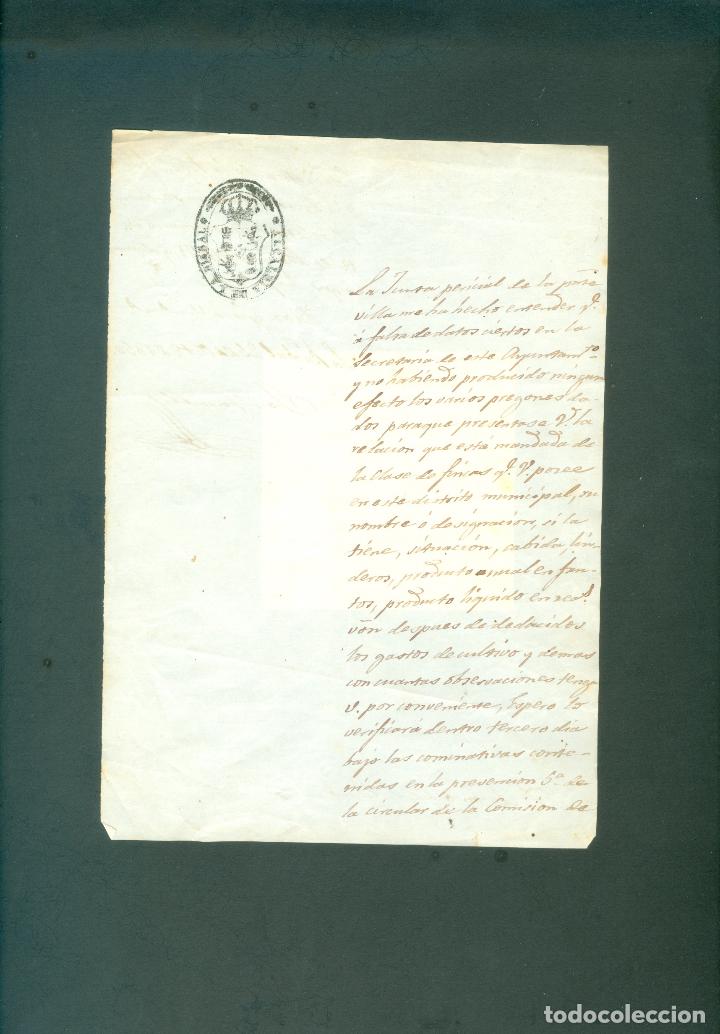 ALCALDIA DE LA BISBAL
La Junta pericial de la pnte
villa me ha hecho entender q.
á falta de datos ciertos en la
Secretaria de este Ayuntam.to
y no habiendo producido ningun
efecto los varios pregones da-
dos paraque presentase V. la
relacion que está mandada de
la clase de fincas q. V. posee
en este distrito municipal, su
nombre ó designacion, si la
tiene, situación, cabida lin-
deros, producto anual en fru-
tos, producto líquido en rea.s
von despues de deducidos
los gastos de cultivo y demas
con cuantas observaciones tenga
V. por conveniente, Espero lo
verificará dentro tercero dia
bajo las cominativas conte-
nidas en la prevencion 6a de
la circular de la Comision de
todocoleccion